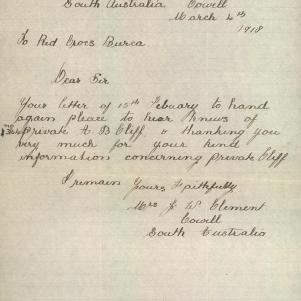 South Australia Cowell
March 4th
1918
To Red Cross Burea
Dear Sir
Your letter of 15th Febuary to hand
again please to hear news of
Private A. B. Cliff, & thanking you
very much for your kind
information concerning Private Cliff
I remain Yours Faithfully
Mrs J W Clement
Cowell
South Australia